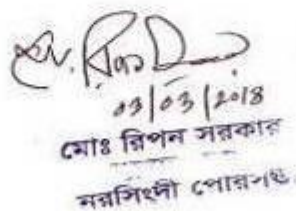 03/03/2018
মোঃ রিপন সরকার
নরসিংদী পৌরসভা